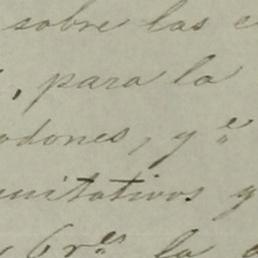 sobre las
, para la
odones, y e
uitativos y
6 r.es la